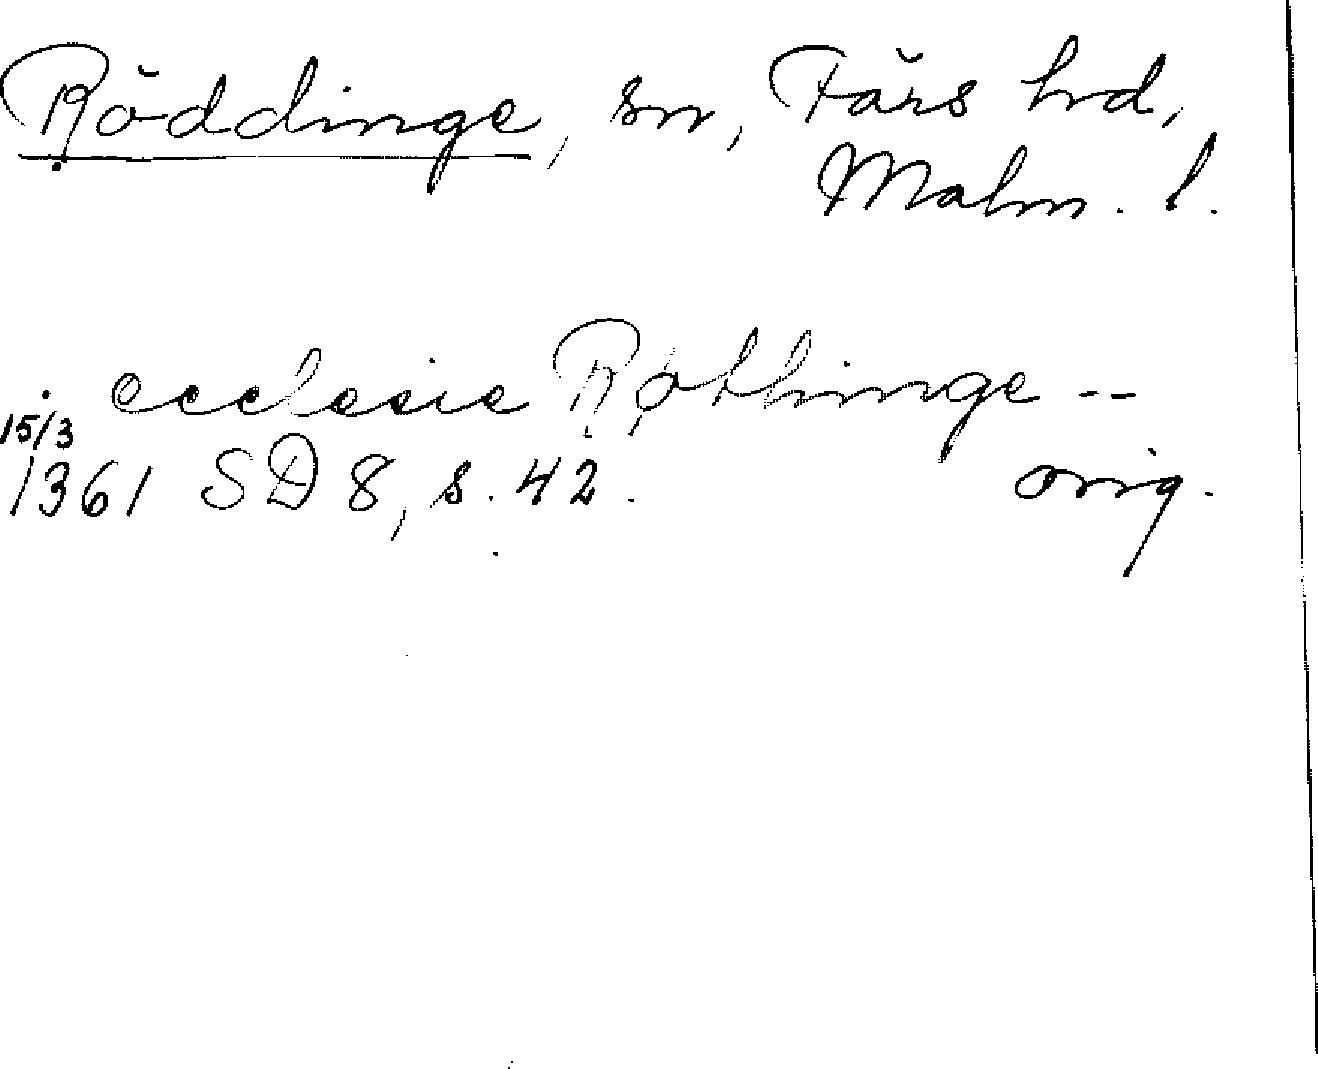 Röddinge, sn, Färs hd,
Malm. l.
ecclesie Røthinge --
15/3
1361 SD 8, s. 42. orig.